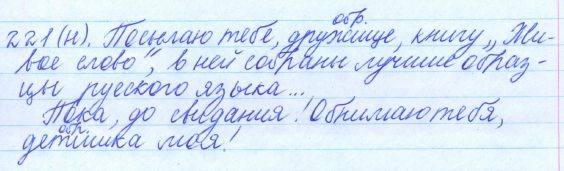 обр.
221(н). Посылаю тебе, дружище, книгу „Жи-
вое слово", в ней собраны лучшие образ-
цы русского языка...
Пока, до свидания! Обнимаю тебя,
обр.
детинка моя!